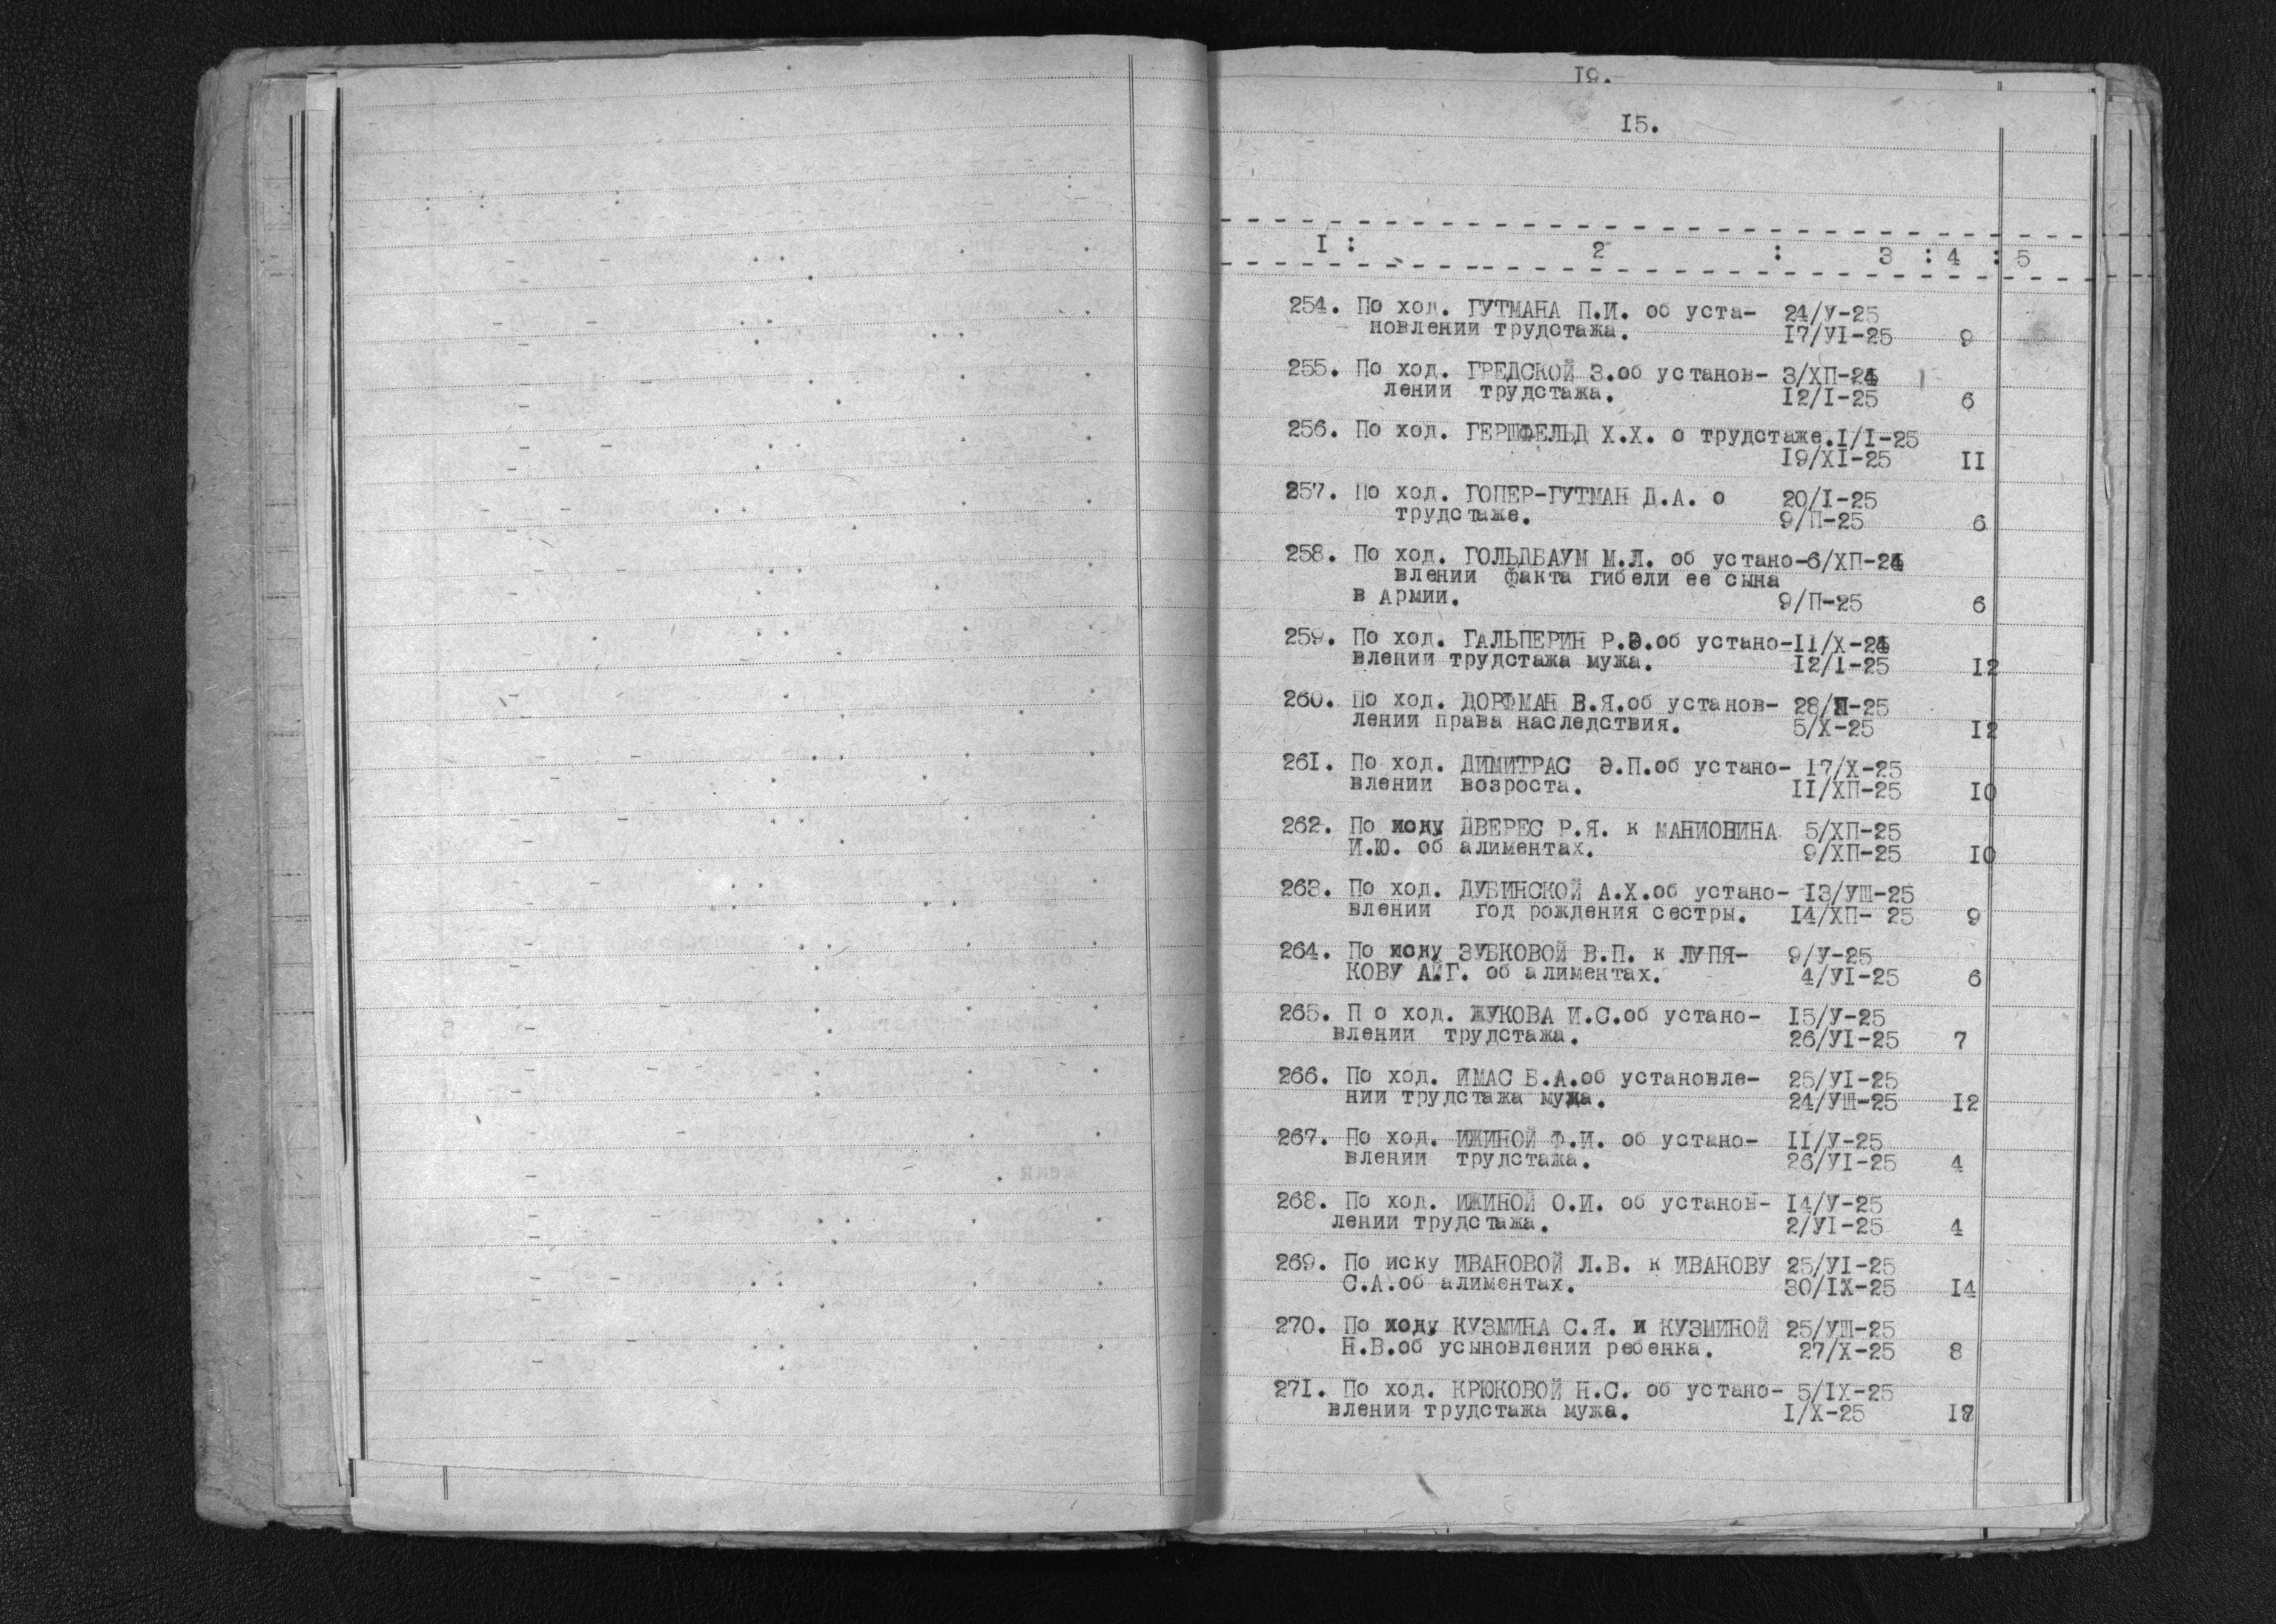 19.
15.
I : 2 : 3 : 4 : 5
254. По ход. ГУТМАНА П.И. об уста- 24/У-25
новлении трудстажа. 17/УI-25 9
255. По ход. ГРЕДСКОЙ З.об установ- 3/ХП-24
лении трудстажа. 12/I-25 6
256. По ход. ГЕРШФЕЛЬД Х.Х. о трудстаже.I/I-25
19/XI-25 II
257. По ход. ГОПЕР-ГУТМАН Д.А. о 20/I-25
трудстаже. 9/П-25 6
258. По ход. ГОЛЬДБАУМ М.Л. об устано-6/ХП-24
влении факта гибели ее сына
в Армии. 9/П-25 6
259. По ход. ГАЛЬПЕРИН Р.Э.об устано-11/Х-24
влении трудстажа мужа. 12/I-25 12
260. По ход. ДОРФМАН В.Я.об установ- 28/П-25
лении права наследствия. 5/Х-25 12
261. По ход. ДИМИТРАС Э.П.об устано- 17/Х-25
влении возроста. II/ХП-25 10
262. По иску ДВЕРЕС Р.Я. к МАНИОВИНА 5/ХП-25
И.Ю. об алиментах. 9/ХП-25 10
263. По ход. ДУБИНСКОЙ А.Х.об устано- 13/УШ-25
влении год рождения сестры. 14/ХП- 25 9
264. По иску ЗУБКОВОЙ В.П. к ЛУПЯ- 9/У-25
КОВУ об алиментах. 4/УI-25 6
265. П о ход. ЖУКОВА И.С.об устано- 15/У-25
влении трудстажа. 26/УI-25 7
266. По ход. ИМАС Б.А.об установле- 25/УI-25
нии трудстажа мужа. 24/УШ-25 12
267. По ход. ИЖИНОЙ Ф.И. об устано- II/У-25
влении трудстажа. 26/УI-25 4
268. По ход. ИЖИНОЙ О.И. об установ- 14/У-25
лении трудстажа. 2/УI-25 4
269. По иску ИВАНОВОЙ Л.В. к ИВАНОВУ 25/УI-25
С.А.об алиментах. 30/IX-25 14
270. По ходу КУЗМИНА С.Я. и КУЗМИНОЙ 25/УШ-25
Н.В.об усыновлении ребенка. 27/Х-25 8
271. По ход. КРЮКОВОЙ Н.С. об устано- 5/IX-25
влении трудстажа мужа. I/Х-25